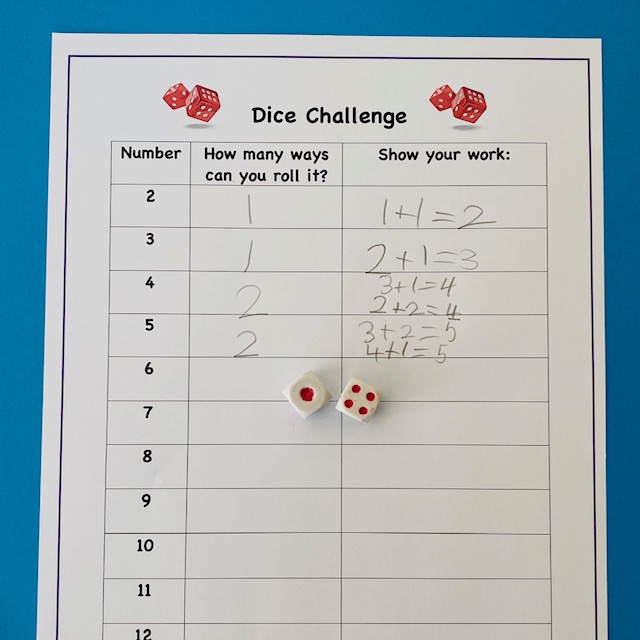 Dice Challenge
Number How many ways can you roll it? Show your work:
2 1 1+1=2
3 1 2+1=3
4 2 3+1=4
2+2=4
5 2 3+2=5
4+1=5
6
7
8
9
10
11
12